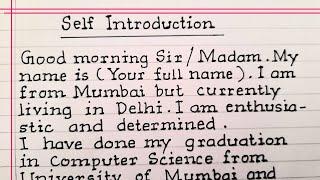 Self Introduction
Good morning Sir/Madam. My
name is (Your full name). I am
from Mumbai but currently
living in Delhi. I am enthusia-
stic and determined.
I have done my graduation
in Computer Science from
University of Mumbai and